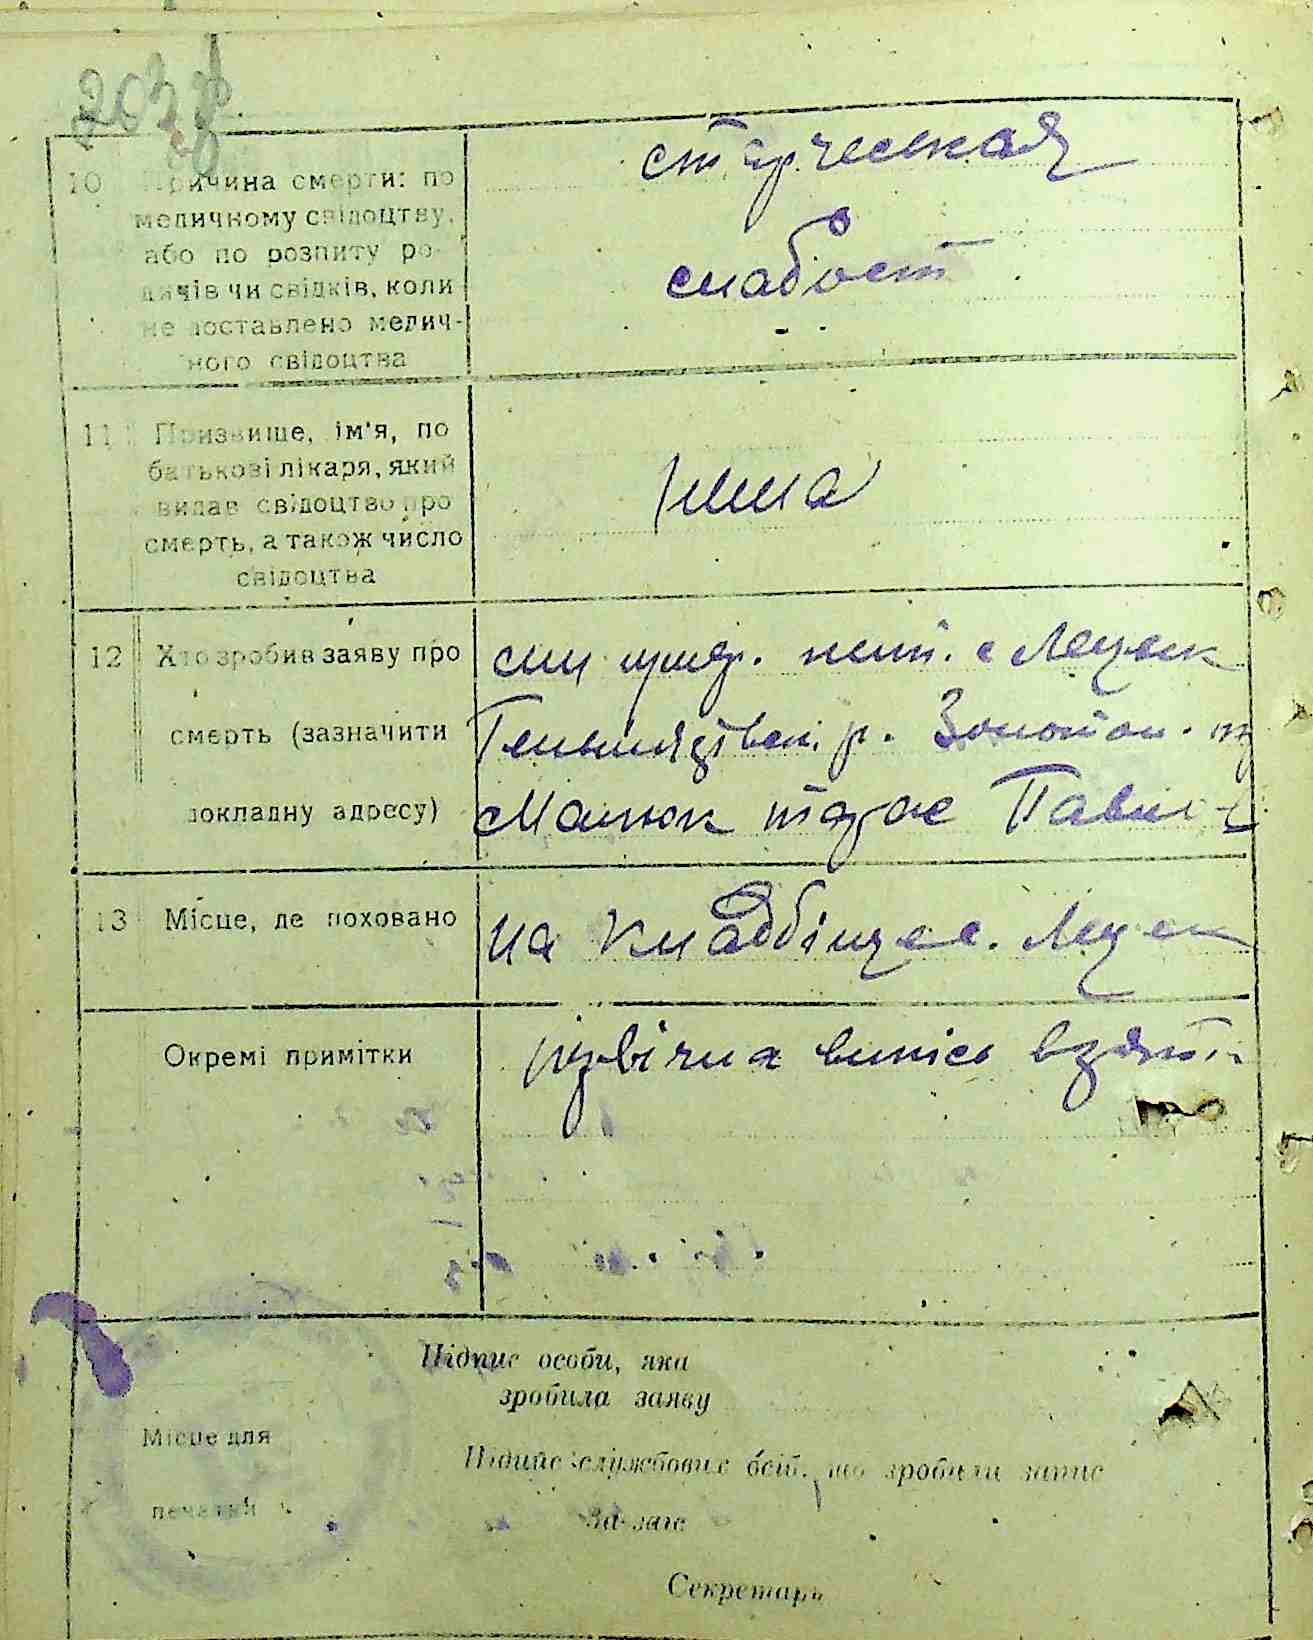 10 Причина смерти: по
медичному свідоцтву,
або по розпиту ро-
дичів чи свідків, коли
не поставлено медич-
ного свідоцтва
старческая
слабост
11 Призвище, ім'я, по
батькові лікаря, який
видав свідоцтво про
смерть, а також число
свідоцтва
нема
12 Хто зробив заяву про
смерть (зазначити
докладну адресу)
син жит. с
р. Золотон.
Павло
13 Місце, де поховано
на Кладбіще с.
Окремі примітки
випісь
Підпис особи, яка
зробила заяву
Місце для
печатки
Підпис службових осіб, що зробили запис
Зав-загс
Секретарь